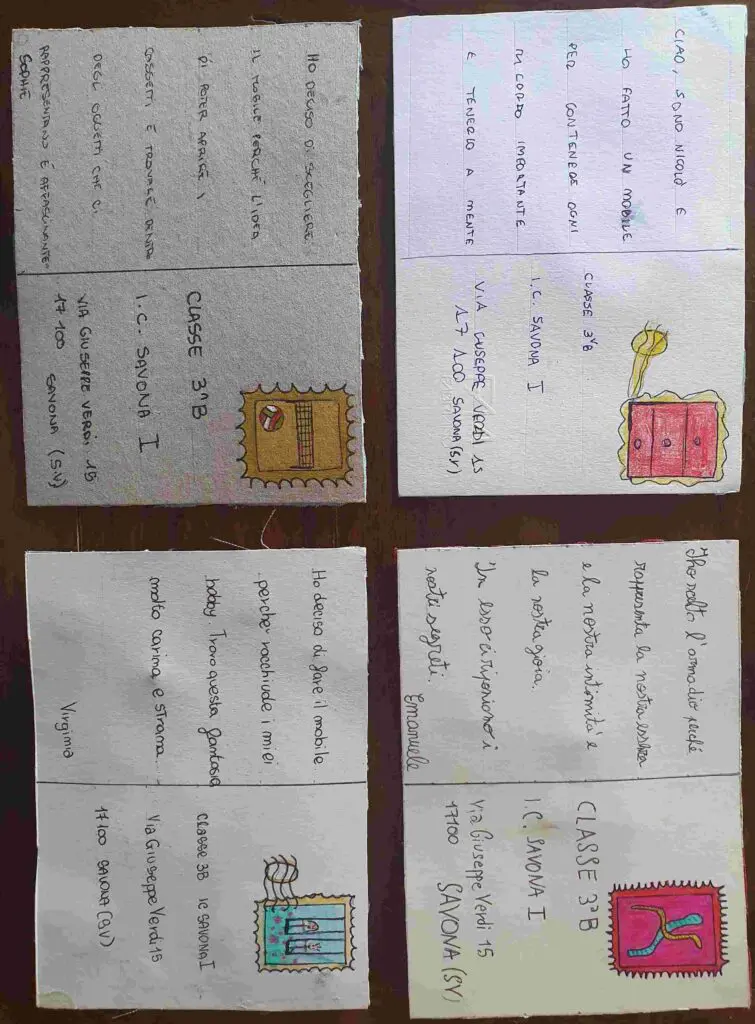 CIAO, SONO NICOLÒ E
HO FATTO UN MOBILE
PER CONTENERE OGNI
RICORDO IMPORTANTE
E TENERLO A MENTE
CLASSE 3ªB
I.C. SAVONA I
VIA GIUSEPPE VERDI 15
17 100 SAVONA (SV)
Ho scelto l'armadio perché
rappresenta la nostra essenza
e la nostra intimità e
la nostra gioia.
In esso ci riponiamo i
nostri segreti.
Emanuele
CLASSE 3ªB
I.C. SAVONA I
Via Giuseppe Verdi 15
17100 SAVONA (SV)
HO DECISO DI SCEGLIERE
IL MOBILE PERCHÉ L'IDEA
DI POTER APRIRE I
CASSETTI E TROVARE DENTRO
DEGLI OGGETTI CHE CI
RAPPRESENTANO È AFFASCINANTE.
SOPHIE
CLASSE 3ªB
I.C. SAVONA I
VIA GIUSEPPE VERDI 15
17 100 SAVONA (S.V)
Ho deciso di fare il mobile
perche racchiude i miei
hobby Trovo questa fantasia
molto carina e strana.
Virginia
Classe 3B IC SAVONA I
Via Giuseppe Verdi 15
17100 SAVONA (SV)